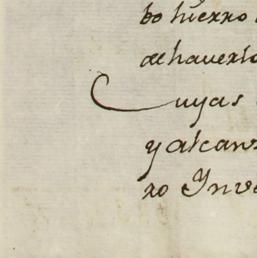 bo hierro
de haverlo
Cuyas
y alcanz
ro Inve